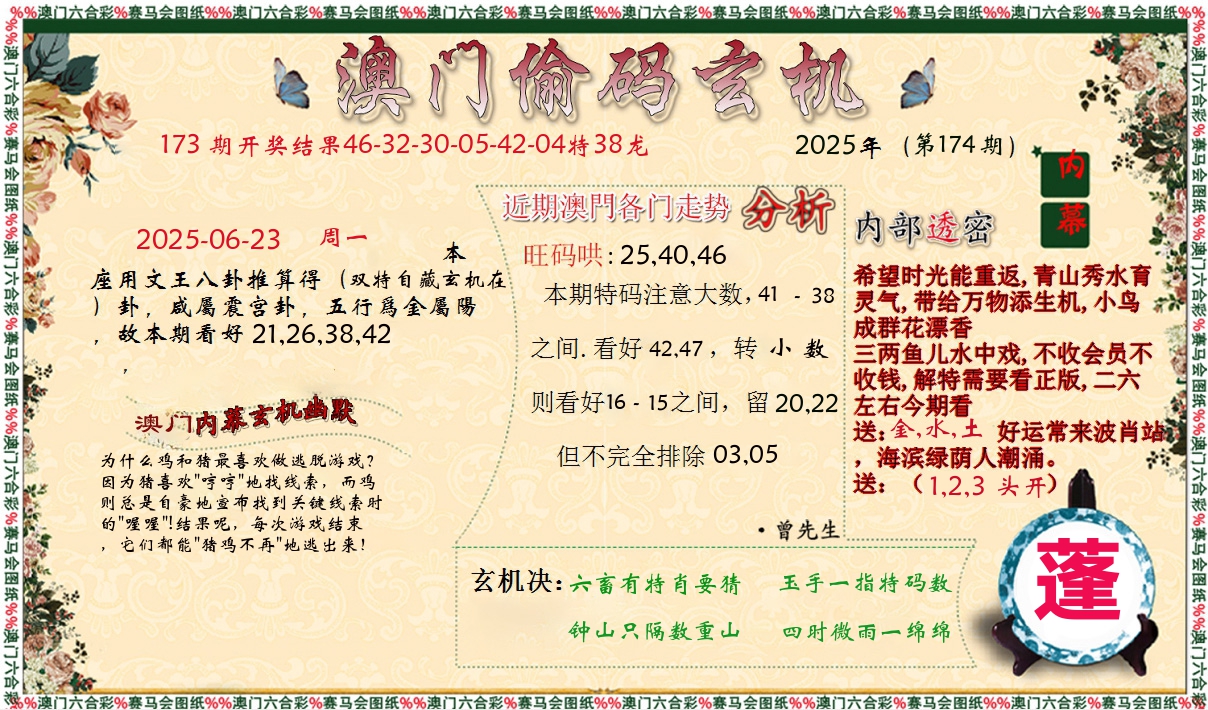 %%澳门六合彩%赛马会图纸%%澳门六合彩%赛马会图纸%%澳门六合彩%赛马会图纸%%澳门六合彩%赛马会图纸%%澳门六合彩%赛马会图纸%%澳门六合彩%赛马会图纸%%
澳门偷码玄机
173 期开奖结果46-32-30-05-42-04特38龙
2025年（第174期）
内幕
2025-06-23 周一
本
座用文王八卦推算得（双特自藏玄机在
）卦，咸屬震宫卦，五行爲金屬陽
，故本期看好 21,26,38,42
，
澳门内幕玄机幽默
为什么鸡和猪最喜欢做逃脱游戏？
因为猪喜欢"哼哼"地找线索，而鸡
则总是自豪地宣布找到关键线索时
的"喔喔"!结果呢，每次游戏结束
，它们都能"猪鸡不再"地逃出来！
近期澳門各门走势 分析
旺码哄: 25,40,46
本期特码注意大数, 41 - 38
之间. 看好 42,47，转 小 数
则看好16 - 15之间，留 20,22
但不完全排除 03,05
·曾先生
内部透密
希望时光能重返, 青山秀水育
灵气, 带给万物添生机, 小鸟
成群花漂香
三两鱼儿水中戏, 不收会员不
收钱, 解特需要看正版, 二六
左右今期看
送: 金,水,土 好运常来波肖站
，海滨绿荫人潮涌。
送：（1,2,3 头开）
玄机决: 六畜有特肖要猜 玉手一指特码数
钟山只隔数重山 四时微雨一绵绵
蓬
%%澳门六合彩%赛马会图纸%%澳门六合彩%赛马会图纸%%澳门六合彩%赛马会图纸%%澳门六合彩%赛马会图纸%%澳门六合彩%赛马会图纸%%澳门六合彩%赛马会图纸%%